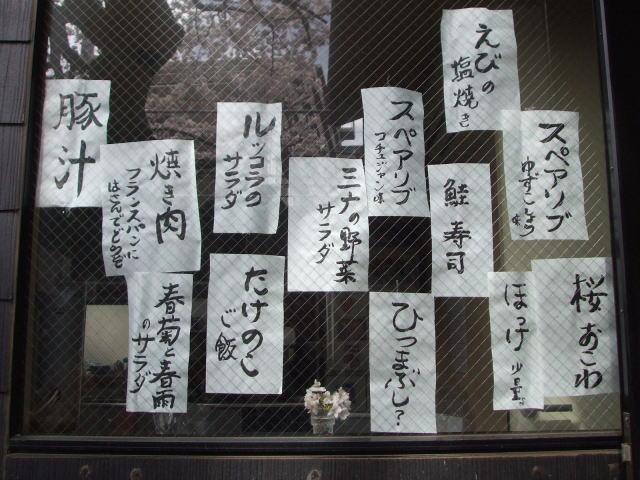 えびの
塩焼き
スペアリブ
コチュジャン味
スペアリブ
ゆずこしょう
味
ルッコラの
サラダ
豚汁
焼き肉
フランスパンに
はさんでどのぞ
ミナの野菜
サラダ
鮭寿司
たけのこ
ご飯
春菊と春雨
のサラダ
ひつまぶし?
ほっけ
少量。
桜あこわ